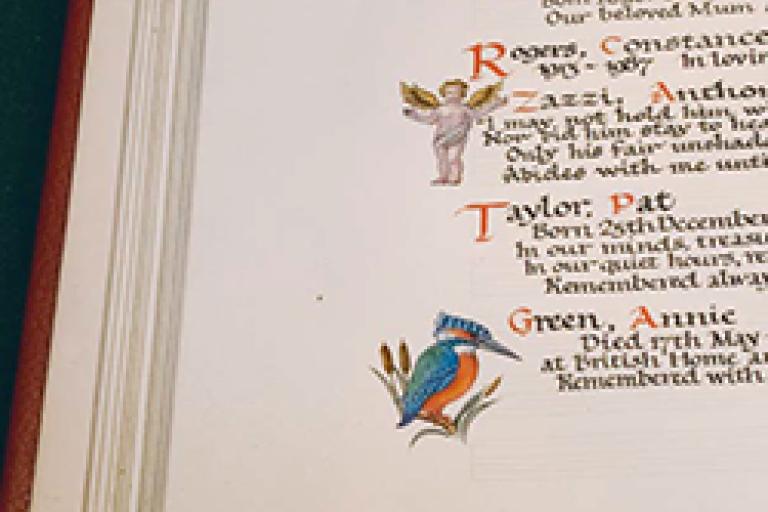 Our beloved Mum
Rogers, Constance
1913 - 1987 In lovin
Zazzi, Anthon
"I may not hold him w
Nor bid him stay to hea
Only his fair unshad
Abides with me unti
Taylor, Pat
Born 25th December
In our minds, treasu
In our quiet hours, re
Remembered alway
Green, Annie
Died 17th May
at British Home an
Remembered with